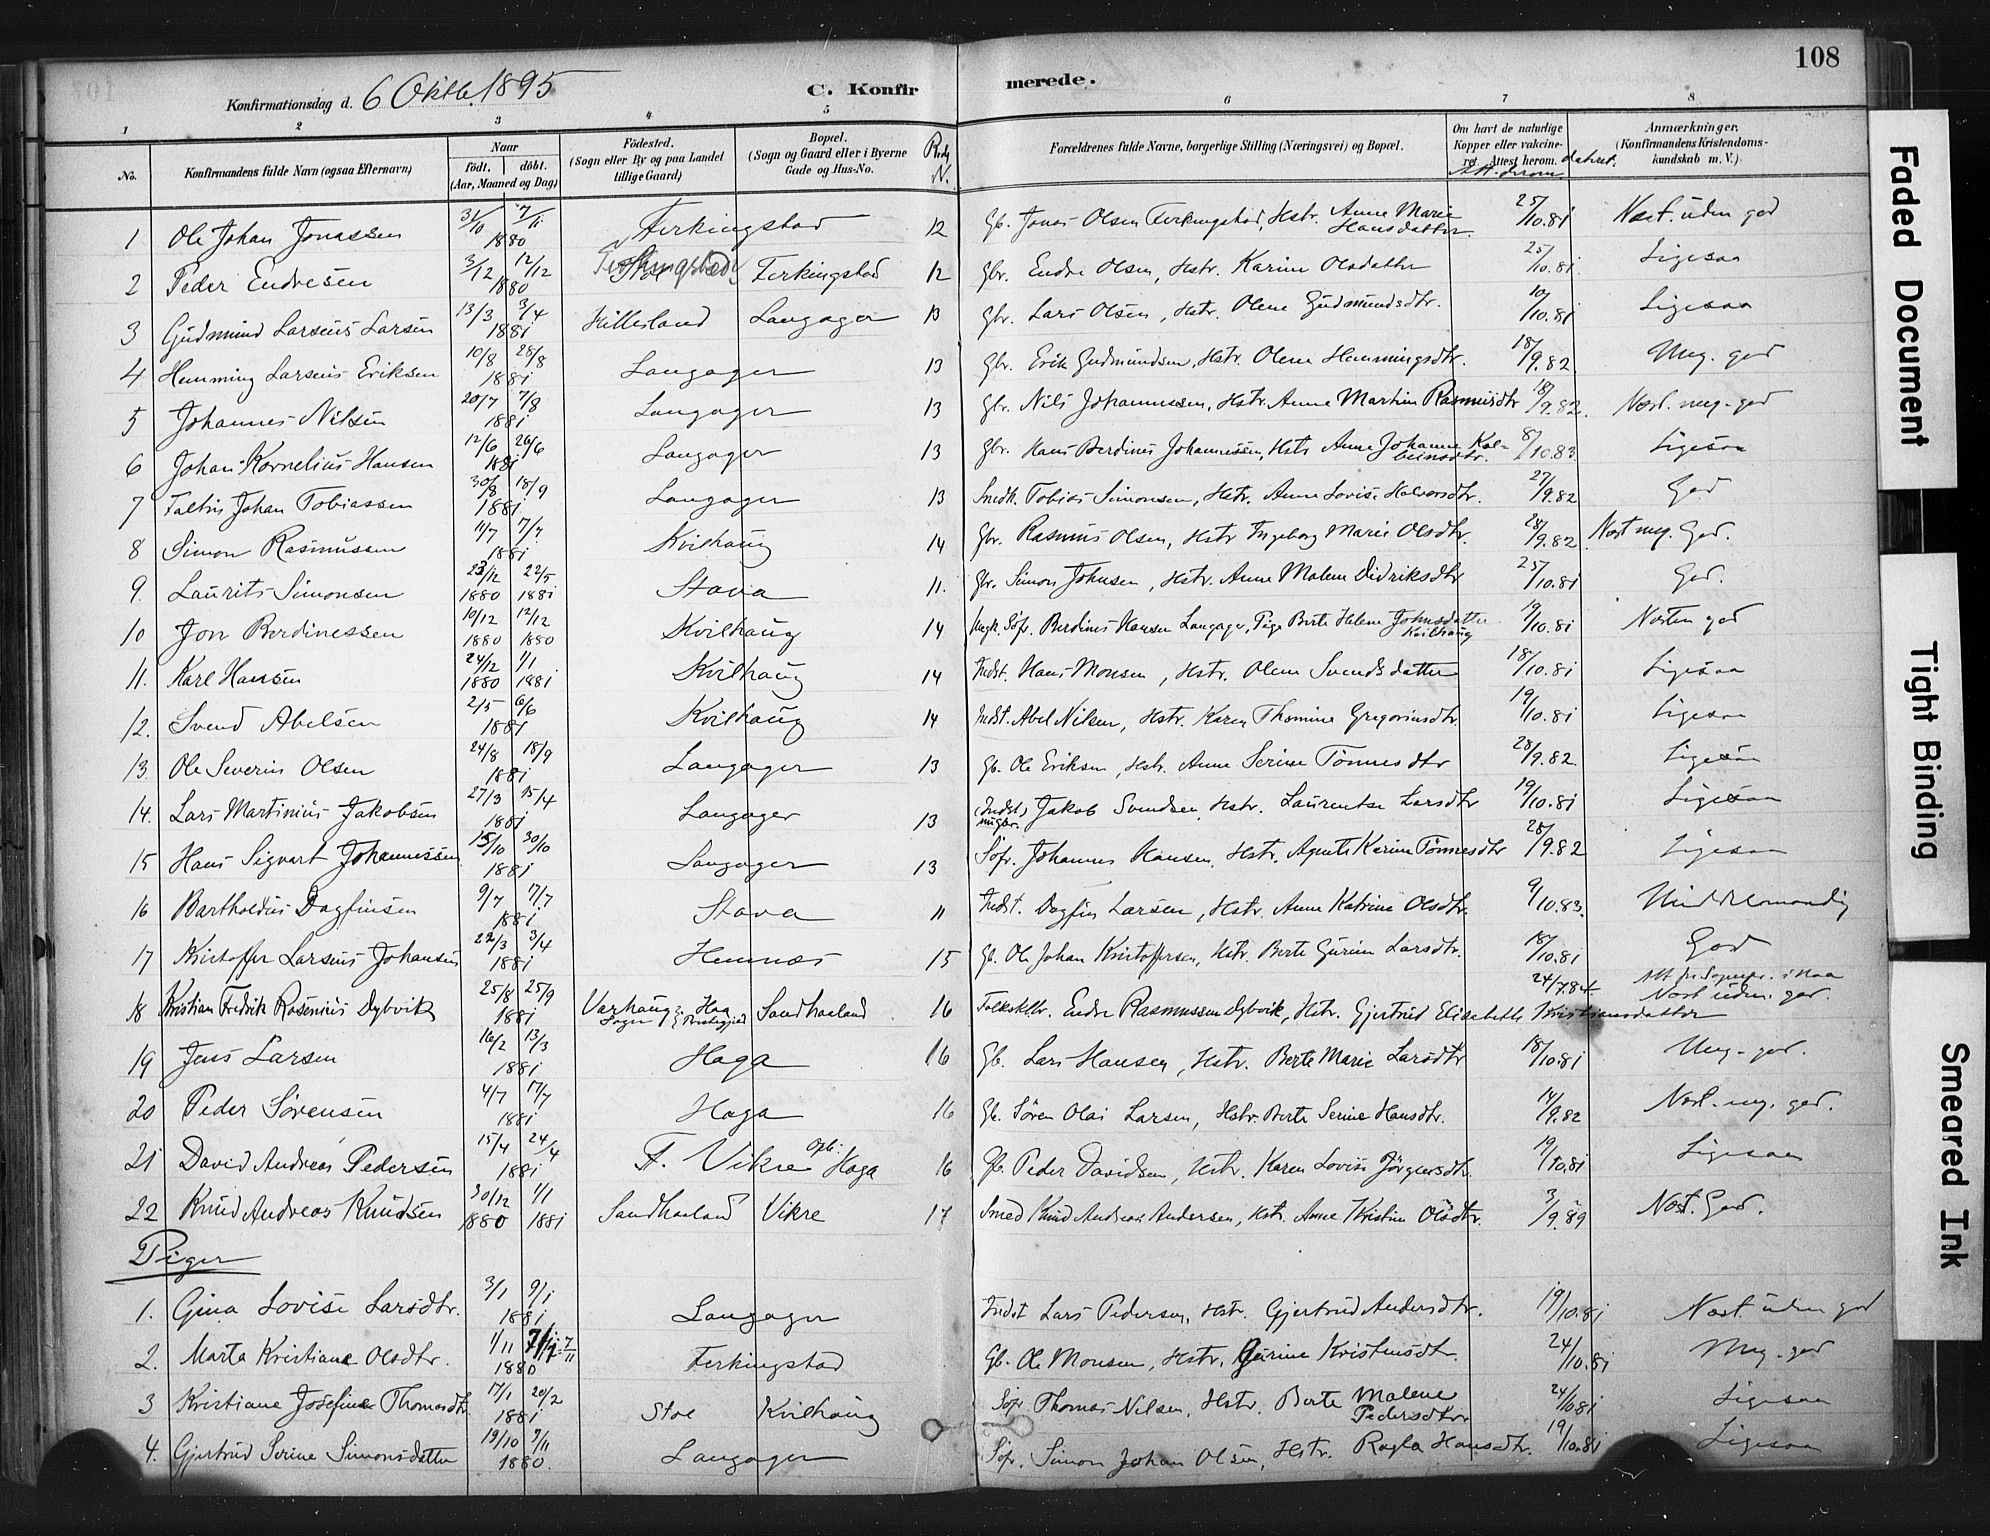 108
Konfirmationsdag d. 6 Oktb. 1895
C. Konfirmerede.
1 2 3 4 5 6 7 8
No. Konfirmandens fulde Navn (ogsaa Efternavn) Naar Födt. döbt. (Aar, Maaned og Dag) Födested. (Sogn eller By og paa Landet tillige Gaard) Bopæl. (Sogn og Gaard eller i Byerne Gade og Hus-No. N. Forældrenes fulde Navne, borgerlige Stilling (Næringsvei) og Bopæl. Om havt de naturlige Kopper eller vaccineret. Attest herom. Anmærkninger. (Konfirmandens Kristendomskundskab m. V.)
1 Ole Johan Jonassen 31/10 7/11 1880 Ferkingstad 12 Gb. Jonas Olsen Ferkingstad, Hstr. Anne Marie Hansdatter 25/10.81 Næst. uden god
2 Peder Endresen 3/12 12/12 1880 Ferkingstad 12 Gbr. Endre Olsen, Hstr. Karine Olsdatter 25/10.81 Ligesaa
3 Gudmund Larsens Larsen 13/3 3/4 1881 Hillesland Langager 13 Gbr. Lars Olsen, Hstr. Olene Gudmundsdtr. 10/10.81 Ligesaa
4 Hemming Larsens Eriksen 10/8 28/8 1881 Langager 13 Gbr. Erik Gudmundsen, Hstr. Olene Hemmingsdtr. 18/9.82 Meg. god
5 Johannes Nilsen 20/7 7/8 1881 Langager 13 Gbr. Nils Johannessen, Hstr. Anne Martine Rasmusdtr 18/9.82. Næst. meg. god
6 Johan Kornelius Hansen 12/6 26/6 1881 Langager 13 Gbr. Hans Berdines Johannessen, Hstr Anne Johanne Kolbeinsdtr. 8/10.83 Ligesaa
7 Faltin Johan Tobiassen 30/8 18/9 1881 Langager 13 Smedk. Tobias Simonsen, Hstr. Anne Lovise Halvorsdtr. 27/9.82 God
8 Simon Rasmussen 4/7 7/7 1881 Kvilhaug 14 Gbr. Rasmus Olsen, Hstr Ingeborg Marie Olsdtr. 28/9.82 Næst meg. God.
9. Laurits Simonsen 23/12 22/5 1880 1881 Stava 11. Gbr. Simon Johnsen, Hstr. Anne Malene Didriksdtr 25/10.81 God.
10 Jon Berdinessen 10/12 12/12 1880 1880 Kvilhaug 14 Ungk. Söfr. Berdines Hansen Langager, Pige Berte Helene Johnsdatter Kvilhaug 19/10.81 Næsten god
11. Karl Hansen 24/12 1/1 1880 1881 Kvilhaug 14 Indst. Hans Monsen, Hstr. Olene Svendsdatter 18/10.81 Ligesaa
12. Svend Abelsen 2/5 6/6 1881 Kvilhaug 14 Indst. Abel Nilsen, Hstr. Karen Thomine Gregoriusdtr 19/10.81 Ligesaa
13. Ole Severin Olsen 24/8 18/9 1881 Langager 13 Gb. Ole Eriksen, Hstr. Anne Serine Tönnesdtr 28/9.82 Ligesaa
14. Lars Martinius Jakobsen 27/3 15/4 1881 Langager 13 (Indst) Jakob Svendsen, Hstr. Laurentse Larsdtr 19/10.81 Ligesaa
15 Hans Sigvart Johannessen 15/10 30/10 1881 Langager 13 Söfr. Johannes Hansen, Hstr, Agnete Karine Tönnesdtr 28/9.82 Ligesaa
16 Bartholdus Dagfinsen 9/7 7/7 1881 Stava 11 Indst. Dagfin Larsen, Hstr. Anne Katrine Olsdtr. 9/10.83.
17 Kristoffer Larsens Johansen 22/3 3/4 1881 Hemnæs 15 Gb. Ole Johan Kristoffersen, Hstr. Berte Gurine Larsdtr. 18/10.81 God
18 Kristian Fredrik Rosenius Dybvik 25/8 25/9 1881 Varhaug Sogn Haa Prestegjeld Sandhaaland 16 Folkesklr. Endre Rasmussen Dybvik, Hstr. Gjertrud Elisabeth Kristiansdatter 24/7.84 Att fr Sognepr. i Haa Næst uden god.
19 Jens Larsen 16/2 13/3 1881 Haga 16 Gb. Lars Hansen, Hstr. Berte Marie Larsdtr 18/10.81 Meg. god.
20 Peder Sörensen 4/7 17/7 1881 Haga 16 Gb. Sören Olai Larsen, Hstr. Berte Serine Hansdtr. 14/9.82 Næst. meg. god.
21 David Andreas Pedersen 15/4 24/4 1881 F. Vikre Opb: Haga 16 Gb. Peder Davidsen, Hstr. Karen Lovise Jörgensdtr. 19/10.81 Ligesaa
22 Knud Andreas Knudsen 30/12 1/1 1880 1881 Sandhaaland Vikre 17 Smed Knud Andreas Andersen, Hstr. Anne Kristine Olsdtr. 3/9.89 Næst. God.
Piger
1. Gina Lovise Larsdtr. 3/1 9/1 1881 Langager Indst Lars Pedersen, Hstr. Gjertrud Andersdtr. 19/10.81 Næst. uden god
2. Marta Kristiane Olsdtr. 1/11 7/11 1880 Ferkingstad Gb. Ole Monsen, Hstr. Gurine Kristensdtr. 24/10.81 Meg. god
3 Kristiane Josefine Thomasdtr. 17/1 20/2 1881 Stoe Kvilhaug Söfr. Thomas Nilsen, Hstr. Berte Malene Pedersdtr. 24/10.81 Ligesaa
4. Gjertrud Serine Simonsdatter 19/10 7/11 1880. Langager Söfr. Simon Johan Olsen, Hstr. Ragla Hansdtr. 19/10.81 Ligesaa
Faded Document
Tight Binding
Smeared Ink